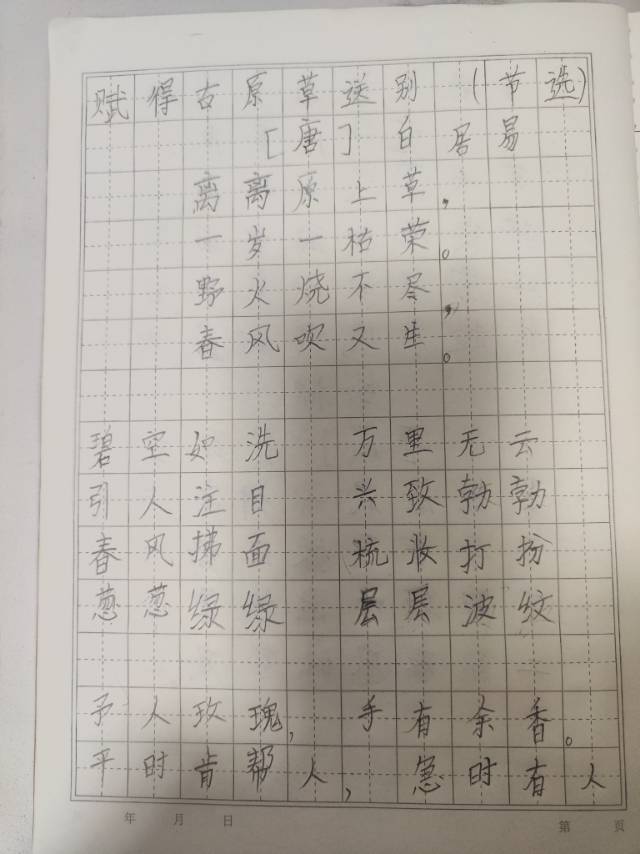 赋得古原草送别（节选）
［唐］白居易
离离原上草，
一岁一枯荣。
野火烧不尽，
春风吹又生。
碧空如洗 万里无云
引人注目 兴致勃勃
春风拂面 梳妆打扮
葱葱绿绿 层层波纹
予人玫瑰，手有余香。
平时肯帮人，急时有人
年 月 日 第 页